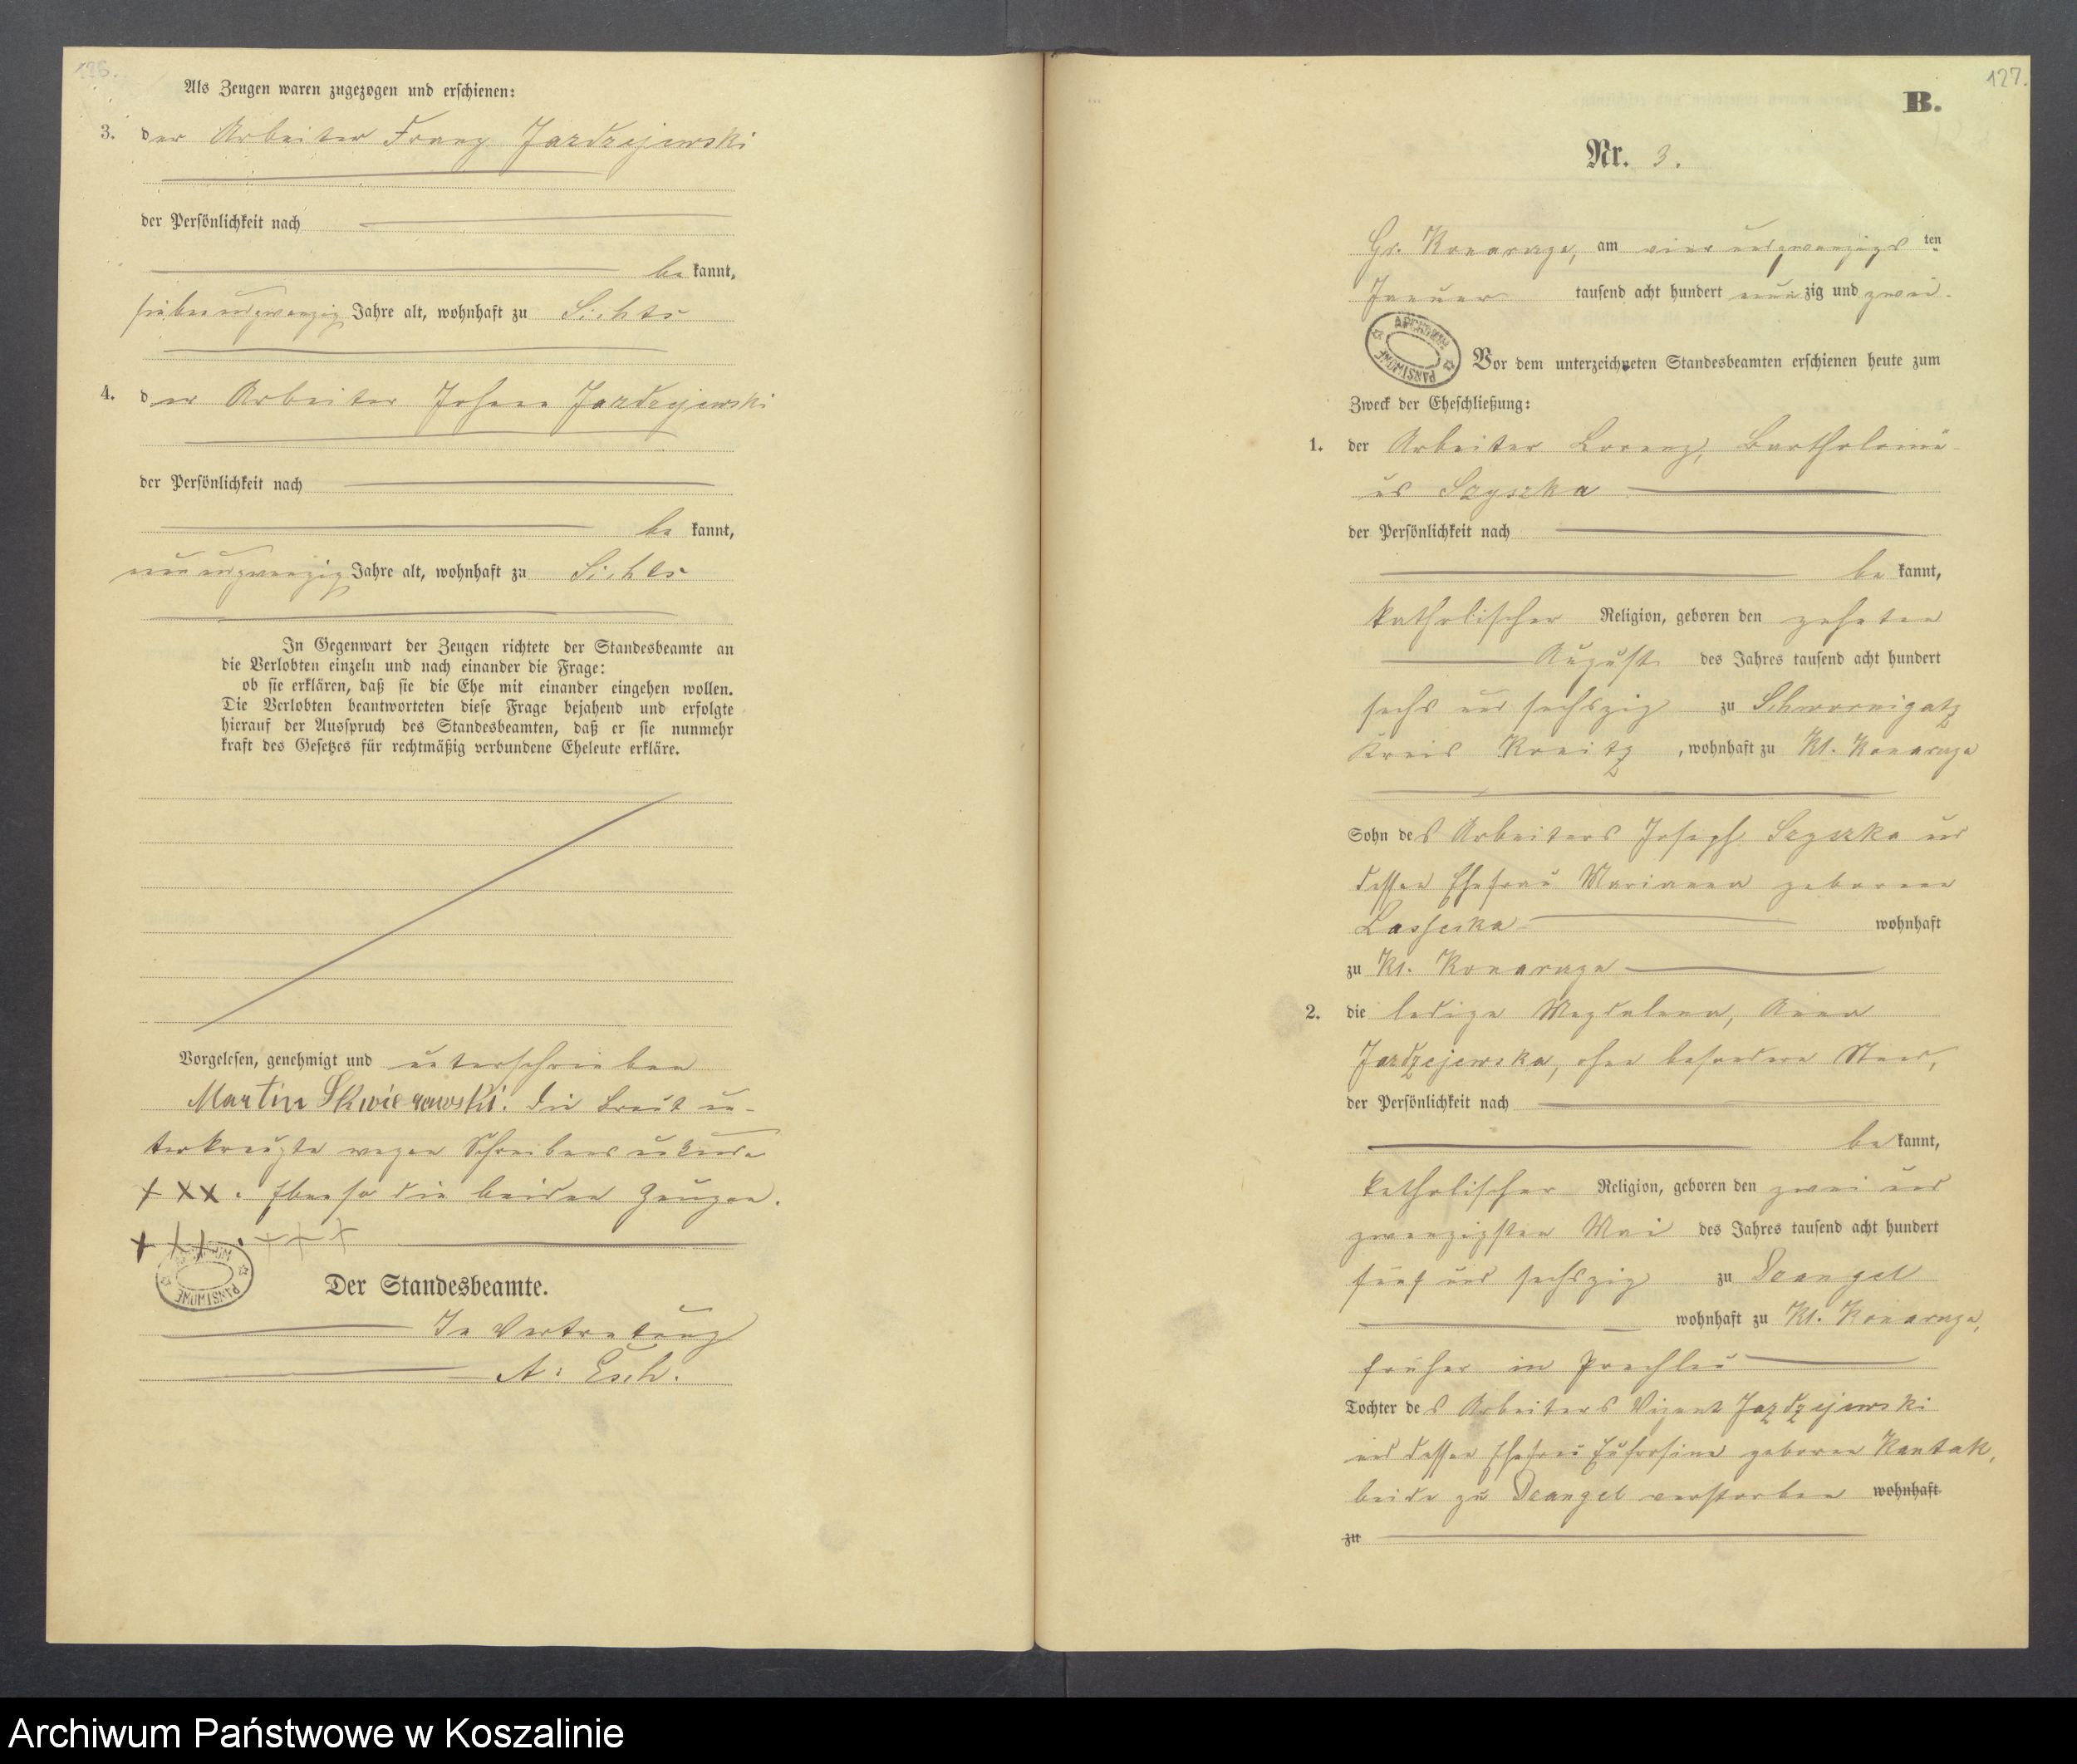 126.
Als Zeugen waren zugezogen und erschienen:
3. der Arbeiter Franz Jazdzejewski
der Persönlichkeit nach
be kannt,
siebenundzwanzig Jahre alt, wohnhaft zu Sichts
4. der Arbeiter Johann Jazdzejewski
der Persönlichkeit nach
be kannt,
neunundzwanzig Jahre alt, wohnhaft zu Sichts
In Gegenwart der Zeugen richtete der Standesbeamte an
die Verlobten einzeln und nach einander die Frage:
ob sie erklären, daß sie die Ehe mit einander eingehen wollen.
Die Verlobten beantworteten diese Frage bejahend und erfolgte
hierauf der Ausspruch des Standesbeamten, daß er sie nunmehr
kraft des Gesetzes für rechtmäßig verbundene Eheleute erkläre.
Vorgelesen, genehmigt und unterschrieben
Martin Skwierawski. Die Braut un-
terkreuzte wegen Schreibensunkunde
+ x x. Ebenso die beiden Zeugen.
+ + + . + + +
Der Standesbeamte.
In Vertretung
A: Esch.
127.
B.
Nr. 3.
Gr. Konarzyn, am vier und zwanzigs ten
Januar tausend acht hundert neun zig und zwei.
ARCHIWUM PAŃSTWOWE
Vor dem unterzeichneten Standesbeamten erschienen heute zum
Zweck der Eheschließung:
1. der Arbeiter Lorenz, Bartholomä-
us Szyszka
der Persönlichkeit nach
be kannt,
katholischer Religion, geboren den zehnten
August des Jahres tausend acht hundert
sechs und sechszig zu Schwornigatz
Kreis Konitz, wohnhaft zu Kl. Konarzyn
Sohn des Arbeiters Joseph Szyszka und
dessen Ehefrau Marianna geborene
wohnhaft
zu Kl. Konarzyn
2. die ledige Magdalena, Anna
Jazdzejewska, ohne besonderen Stand,
der Persönlichkeit nach
be kannt,
katholischer Religion, geboren den zwei und
zwanzigsten Mai des Jahres tausend acht hundert
fünf und sechszig zu Drangel
wohnhaft zu Kl. Konarzyn,
früher in Prechlau
Tochter des Arbeiters Vizent Jazdzejewski
und dessen Ehefrau Eufrosine geborene Kantak,
beide zu Drangel verstorben wohnhaft
zu
Archiwum Państwowe w Koszalinie